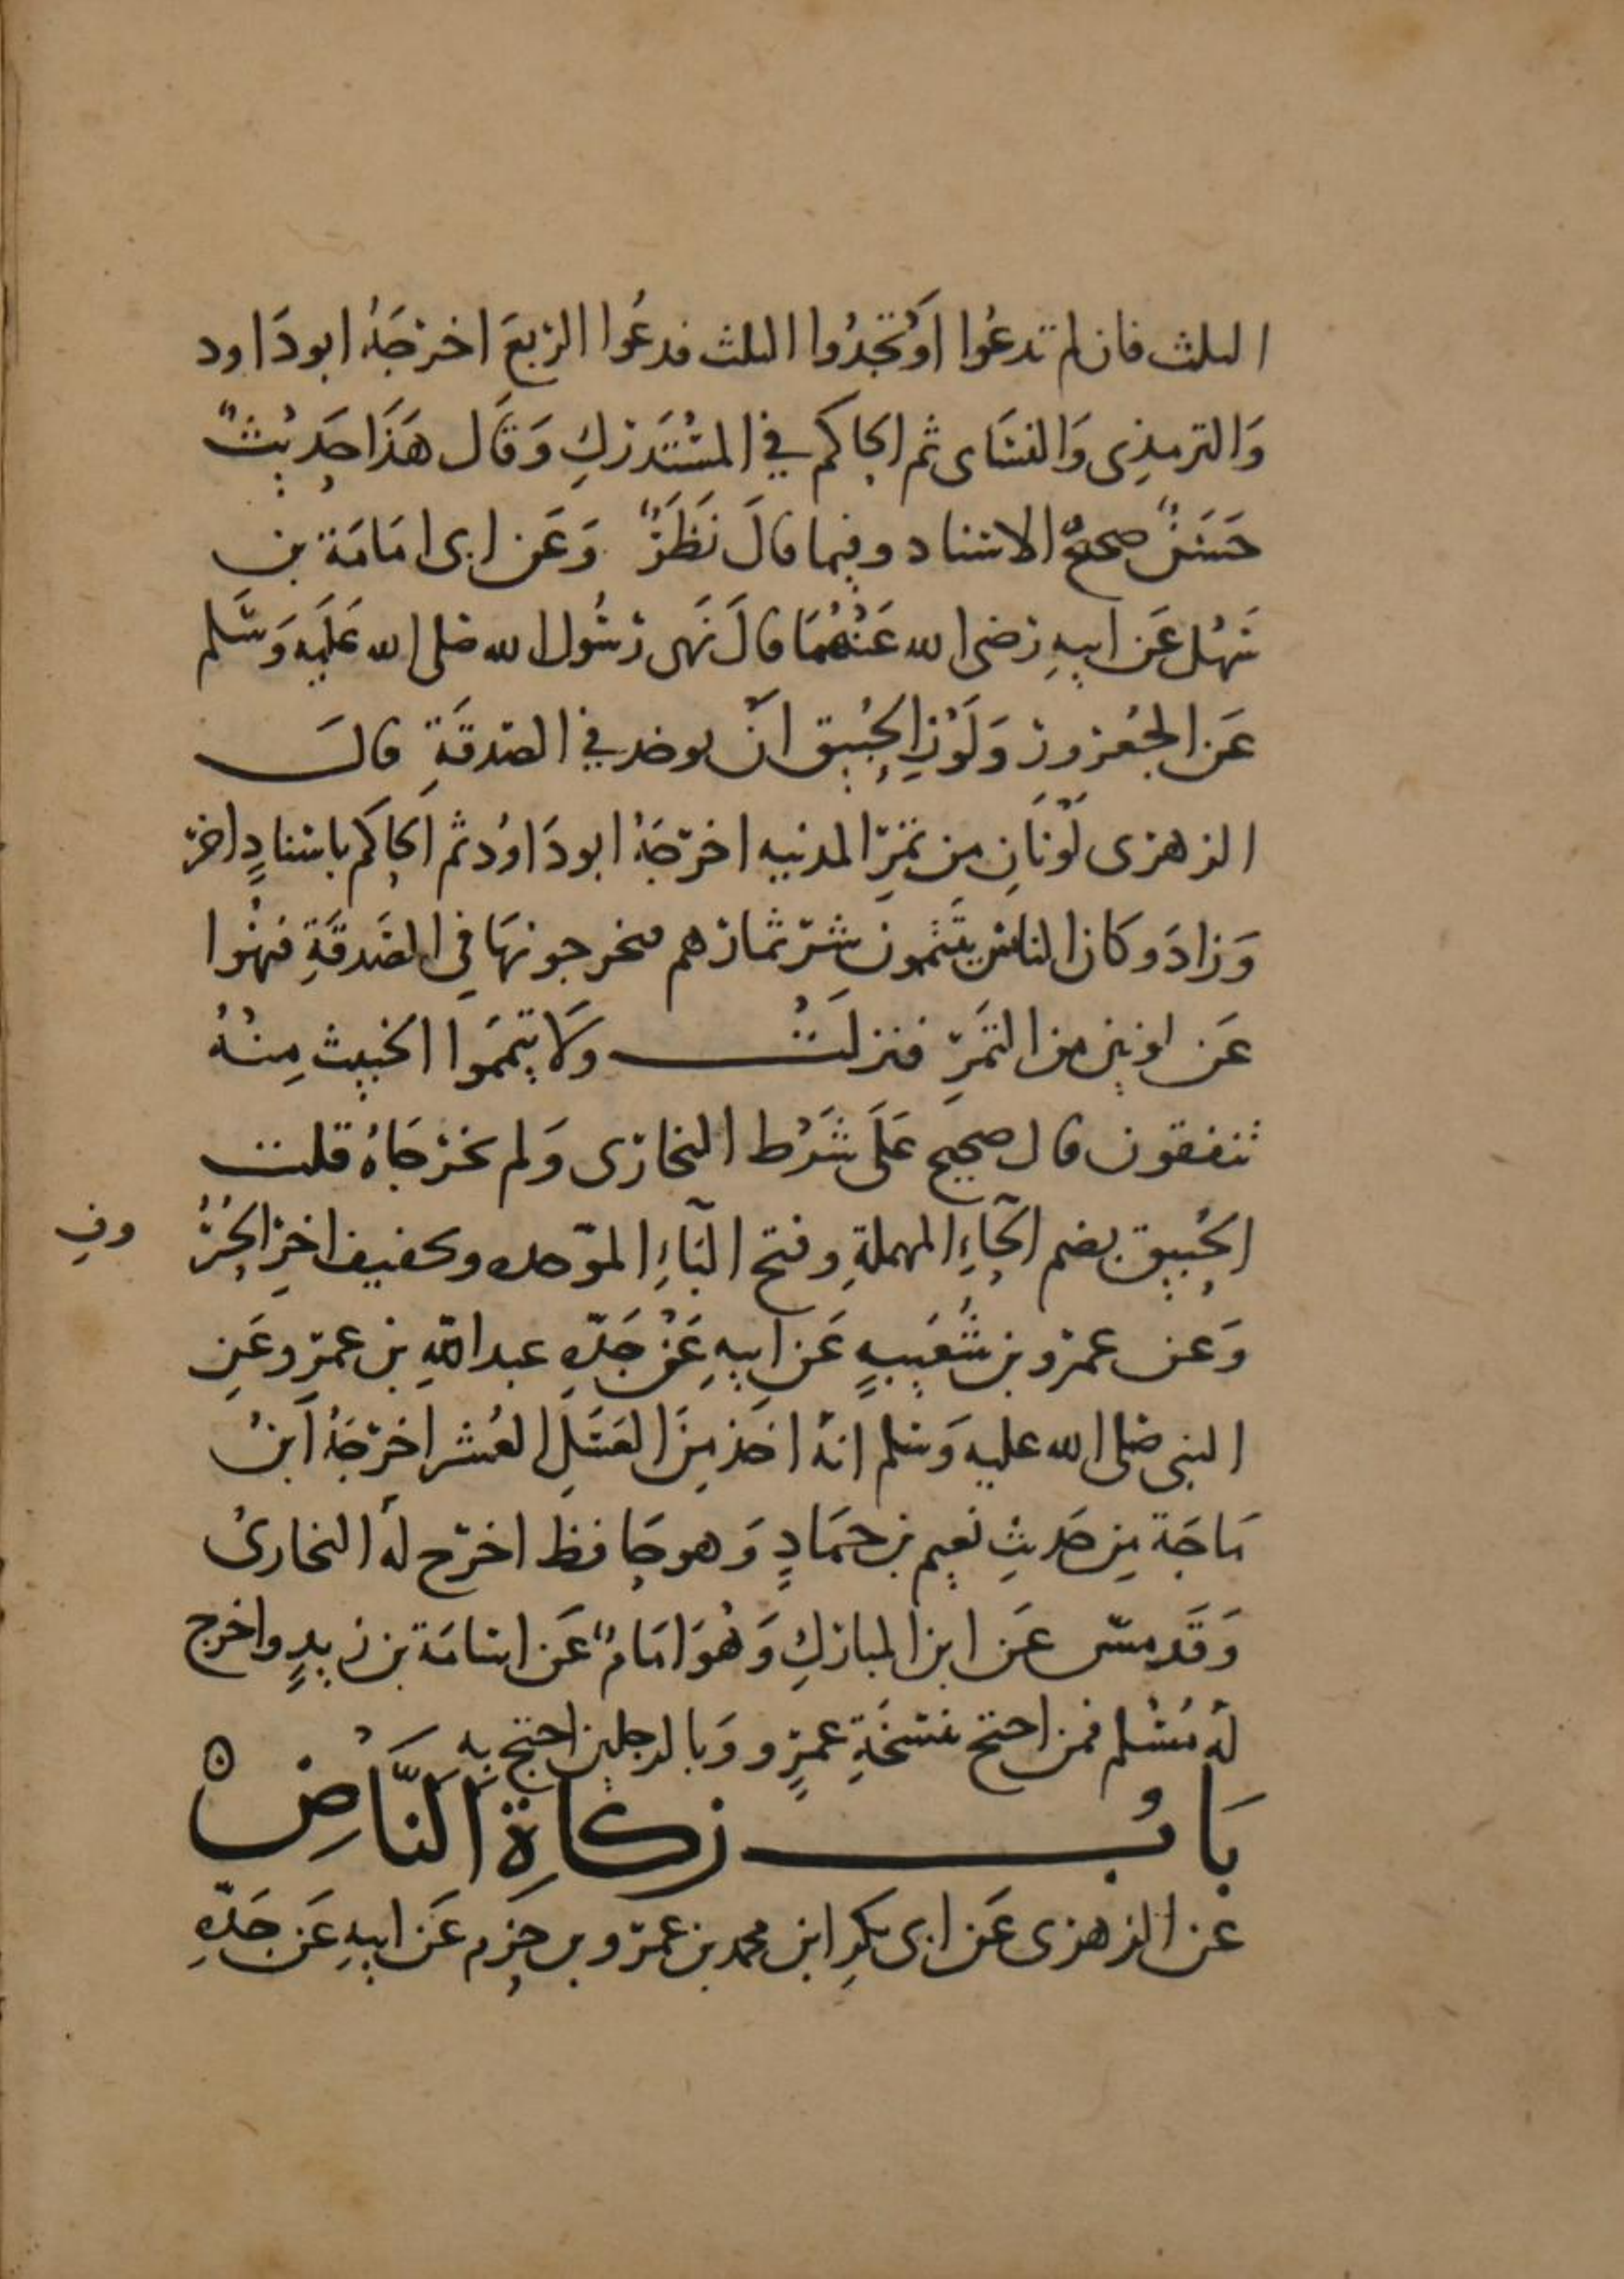 الثلث فان لم تدعُوا اَو تجدُوا الثلث فدعُوا الربعَ اخرجَهُ ابو دَاود
وَالترمذِى وَالنسَاى ثم الحاكم في المسُتَدركِ وَقَال هَذَا حَدِيْثٌ
حَسَنٌ صحيحُ الاسناد وفيما قالَ نَظَرٌ وَعَن ابى امَامَة بن
سَهْل عَن ابيهِ رضى الله عَنْهُمَا قالَ نَهَى رسُول الله صلى الله عَلَيه وَسَّلم
عَن الجُعرورِ وَلَوْنِ الحُبيق انْ يوخذ في الصّدقَةِ قالَ
الزهرى لَوْنَانِ من تَمرِ المدنيه اخرجَهُ ابو دَاوُد ثم الحاكم باسنادٍ اخرَ
وَزادَ وكان الناسُ يَتيَممونَ شرّ ثمارهم فيخرجونهَا فِى الصَّدقَةِ فنهُوا
عَن لونين من التَمرِ فنزلَتْ وَلَا تيَممَوا الخبيث مِنْهُ
تنفقون قال صحيح عَلَى شَرْط البخارى وَلم يخرجَاهُ قلت
الحُبيق بضم الحَاءِ المهملةِ وفتح البَاءِ الموّحده وتخفيف اخِرِ الحُرُ
وفِ
وَعن عمرو بن شُعَيبٍ عَن ابيهِ عَنْ جَدّهِ عبد اللهِ بن عمرٍو عَنِ
النبى صَلى الله عليه وَسَلم انهُ اخَذ مِنَ العَسَلِ العُشر اخرجَهُ ابنُ
مَاجَة مِن حَديثِ نعيم بن حمَادٍ وَهو حَافظ اخرَج لهُ البخارىُ
وَقَد عَن ابن المباركِ وَهُوَ امَامٌ عَن اسَامَة بن زيدٍ واخرج
لهُ مُسْلم فمن احتج بنسخَةِ عمرٍو وَبالرجلين احتج بِهِ
بَابُ زكاةِ النَّاضِّ
عن الزهرى عَن ابى بكرِ ابن محمد بن عمرو بن حزم عَن ابيهِ عَن جَدّهِ